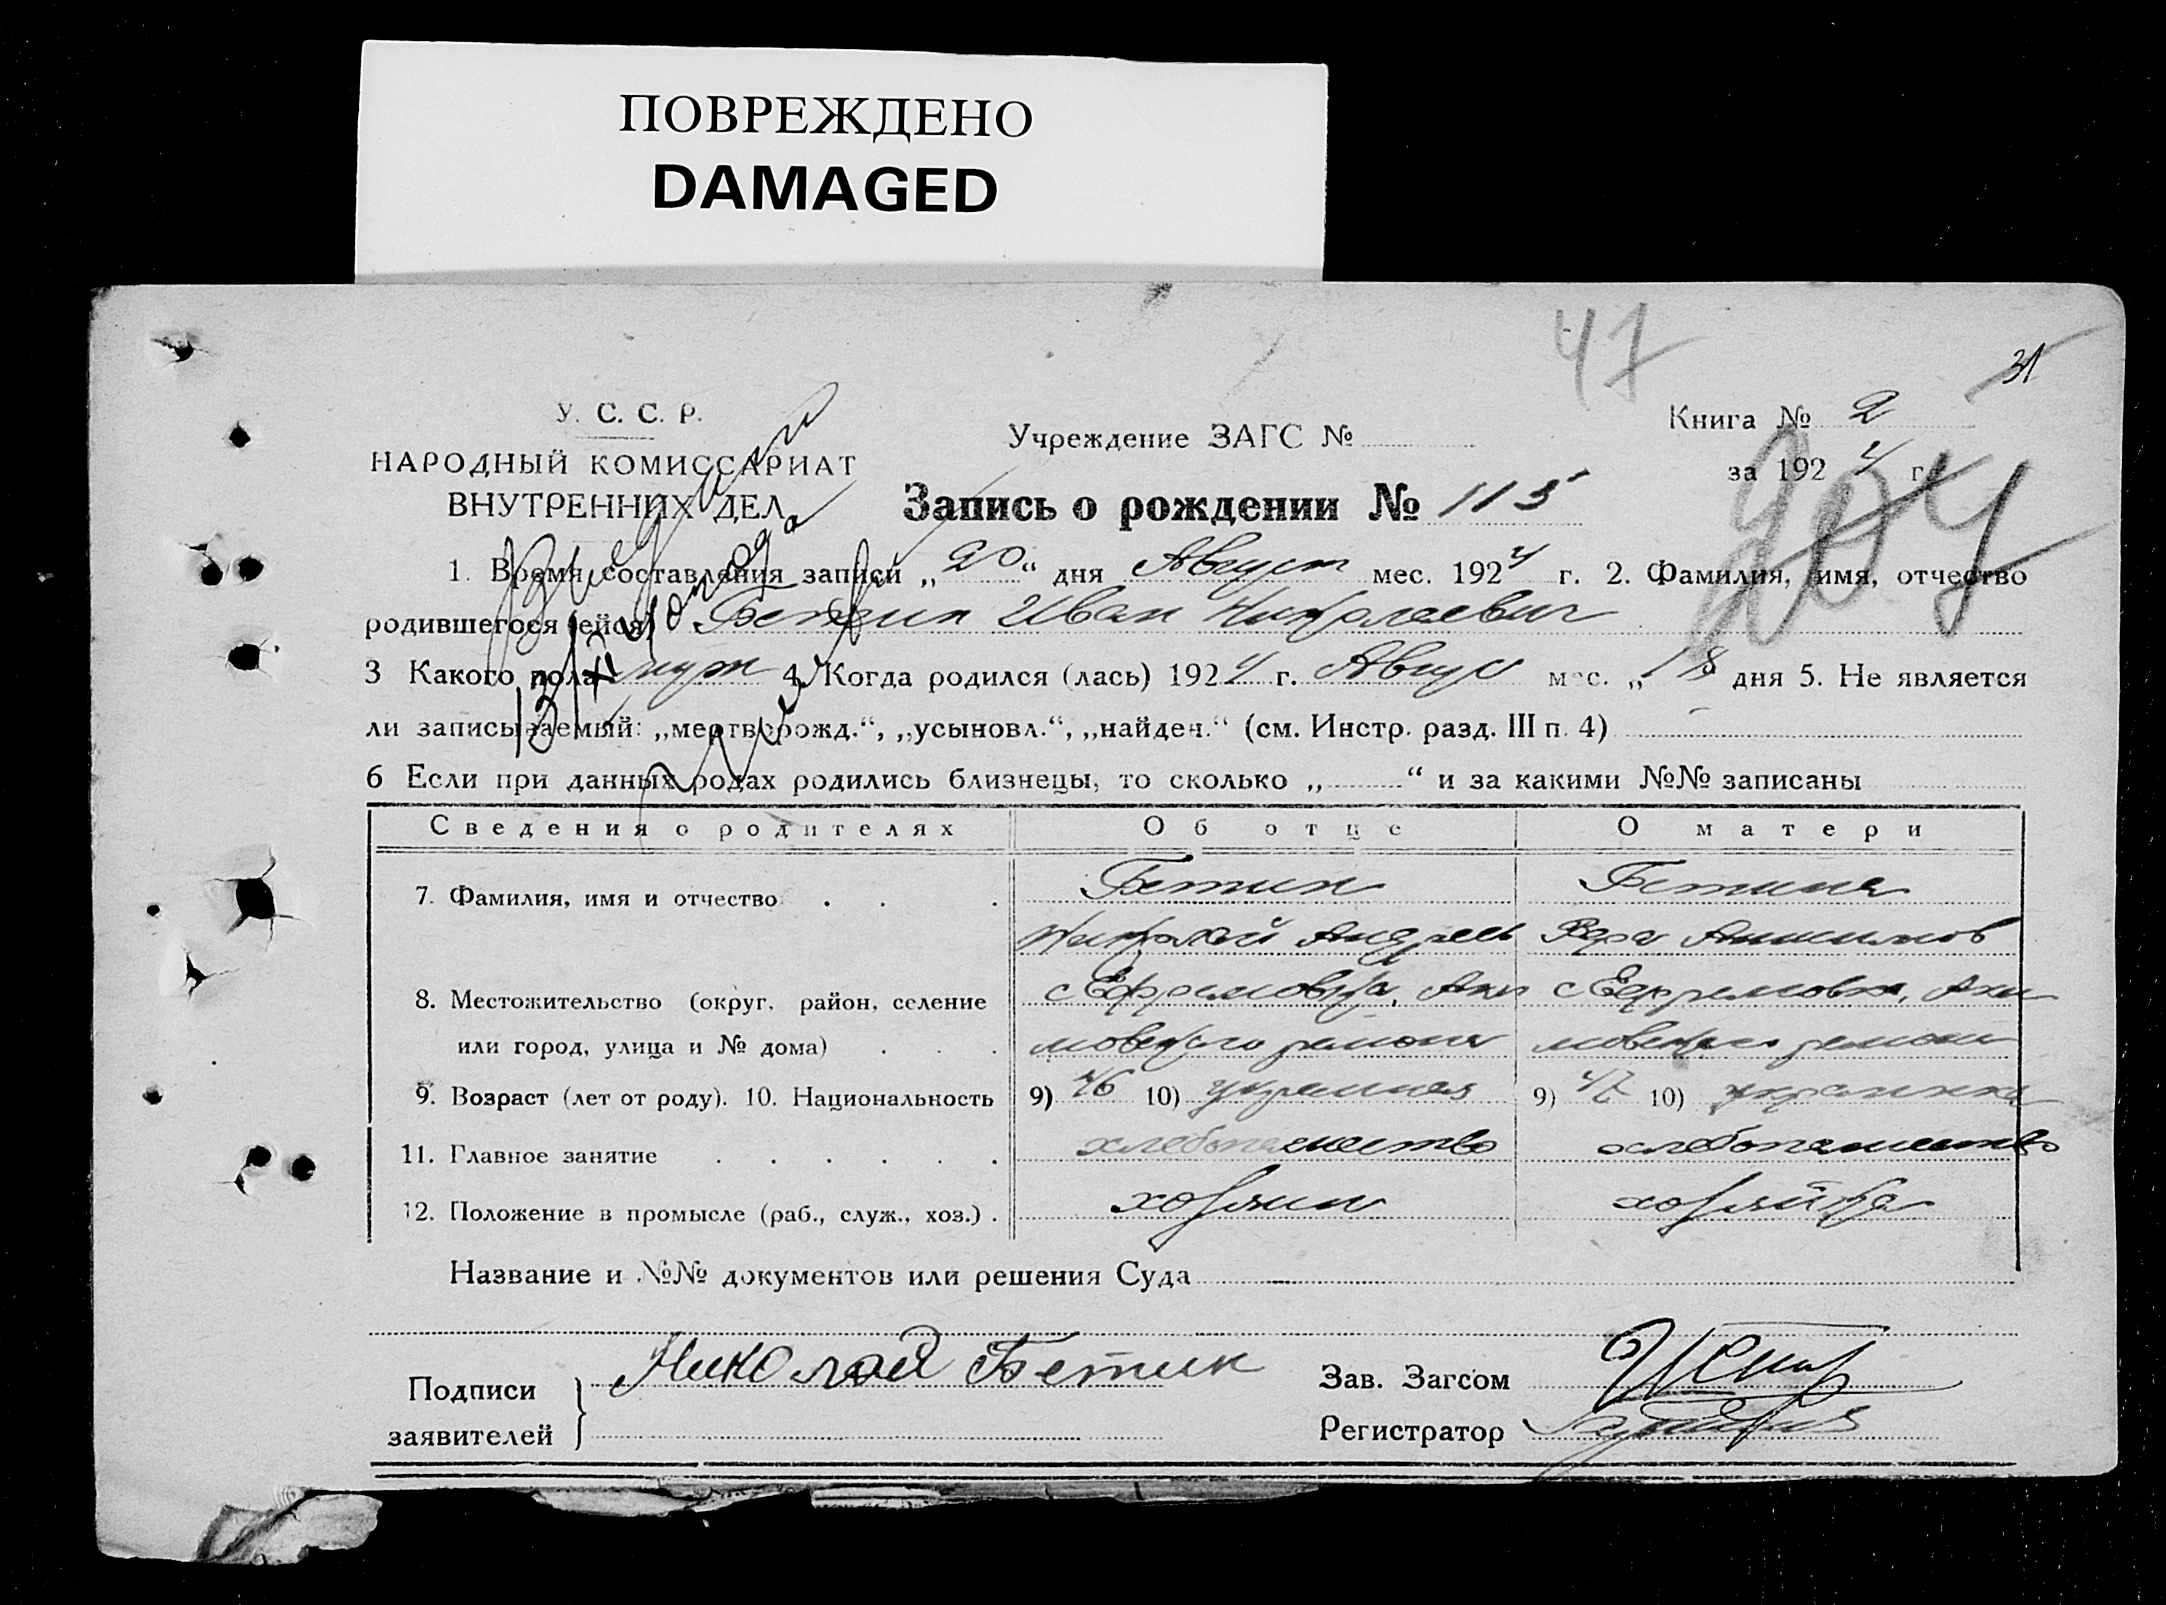 ПОВРЕЖДЕНО
DAMAGED
47
31
У. С. С. Р.
НАРОДНЫЙ КОМИССАРИАТ
ВНУТРЕННИХ ДЕЛ
Учреждение ЗАГС №
Книга № 2
за 1924 г.
204
Запись о рождении № 115
1. Время составления записи „20“ дня Август мес. 1924 г. 2. Фамилия, имя, отчество
родившегося (ейся) Бетин Иван Николаевич
3 Какого пола муж 4. Когда родился (лась) 1924 г. Авгус мес. „18“ дня 5. Не является
ли записываемый: „мертворожд.“, „усыновл.“, „найден.“ (см. Инстр. разд. III п. 4)
6 Если при данных родах родились близнецы, то сколько „ “ и за какими №№ записаны
Сведения о родителях Об отце О матери
7. Фамилия, имя и отчество Бетин Бетина
Николай Андреев Вера
8. Местожительство (округ, район, селение с Ефремовка, Аки с Ефремовка, Аки
или город, улица и № дома) мовского района мовского района
9. Возраст (лет от роду). 10. Национальность 9) 46 10) 9) 42 10) украинка
11. Главное занятие хлебопашество хлебопашество
12. Положение в промысле (раб., служ., хоз.) хозяин хозяйка
Название и №№ документов или решения Суда
Подписи заявителей Николай Бетин
Зав. Загсом
Регистратор